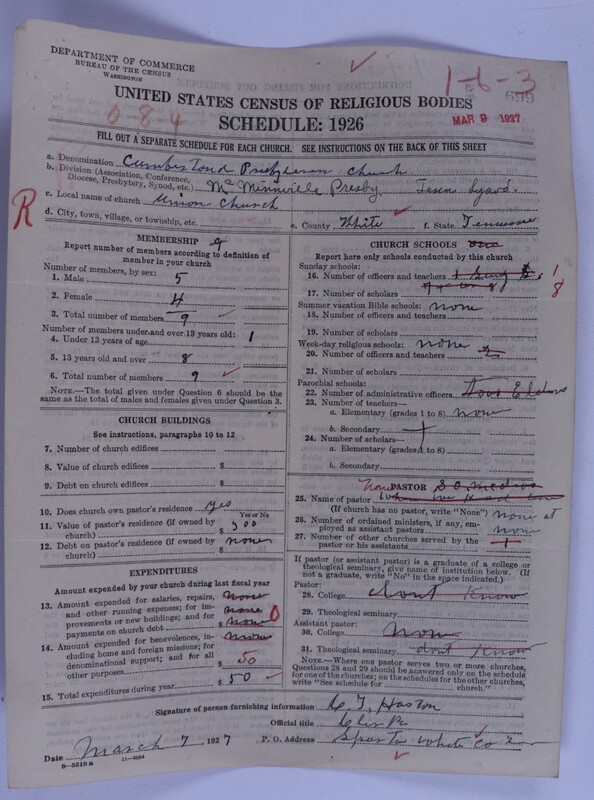 DEPARTMENT OF COMMERCE
BUREAU OF THE CENSUS
WASHINGTON
1-6-3
669
0-8-4
UNITED STATES CENSUS OF RELIGIOUS BODIES
SCHEDULE: 1926
MAR 9 1927
FILL OUT A SEPARATE SCHEDULE FOR EACH CHURCH. SEE INSTRUCTIONS ON THE BACK OF THIS SHEET
a. Denomination Cumberland Presbyterian church
b. Division (Association, Conference, Diocese, Presbytery, Synod, etc.) McMinnville Presby
c. Local name of church Union Church
R
d. City, town, village, or township, etc.
e. County White f. State Tennessee
MEMBERSHIP 9
Report number of members according to definition of member in your church
Number of members, by sex:
1. Male 5
2. Female 4
3. Total number of members 9
Number of members under and over 13 years old:
4. Under 13 years of age 1
5. 13 years old and over 8
6. Total number of members 9
NOTE.—The total given under Question 6 should be the same as the total of males and females given under Question 3.
CHURCH BUILDINGS
See instructions, paragraphs 10 to 12
7. Number of church edifices
8. Value of church edifices $
9. Debt on church edifices $
10. Does church own pastor's residence yes
Yes or No
11. Value of pastor's residence (if owned by church) $ 300
12. Debt on pastor's residence (if owned by church) $ none
EXPENDITURES
Amount expended by your church during last fiscal year
13. Amount expended for salaries, repairs, and other running expenses; for improvements or new buildings; and for payments on church debt $ none none none 0
14. Amount expended for benevolences, including home and foreign missions; for denominational support; and for all other purposes $ none 50
15. Total expenditures during year $ 50
CHURCH SCHOOLS one
Report here only schools conducted by this church
Sunday schools:
16. Number of officers and teachers 1
17. Number of scholars 8
Summer vacation Bible schools: none
18. Number of officers and teachers
19. Number of scholars
Week-day religious schools: none
20. Number of officers and teachers
21. Number of scholars
Parochial schools:
22. Number of administrative officers Two Elders
23. Number of teachers—
a. Elementary (grades 1 to 8) none
b. Secondary
24. Number of scholars—
a. Elementary (grades 1 to 8)
b. Secondary
None PASTOR
25. Name of pastor
(If church has no pastor, write "None") none at
26. Number of ordained ministers, if any, employed as assistant pastors none
27. Number of other churches served by the pastor or his assistants
If pastor (or assistant pastor) is a graduate of a college or theological seminary, give name of institution below. (If not a graduate, write "No" in the space indicated.)
Pastor:
28. College dont know
29. Theological seminary
Assistant pastor:
30. College none
31. Theological seminary dont know
NOTE.—Where one pastor serves two or more churches, Questions 28 and 29 should be answered only on the schedule for one of the churches; on the schedules for the other churches, write "See schedule for church."
Signature of person furnishing information C. T. Haston
Official title
Date March 7, 1927 P. O. Address Sparta White Co
8-5518a 11-9084